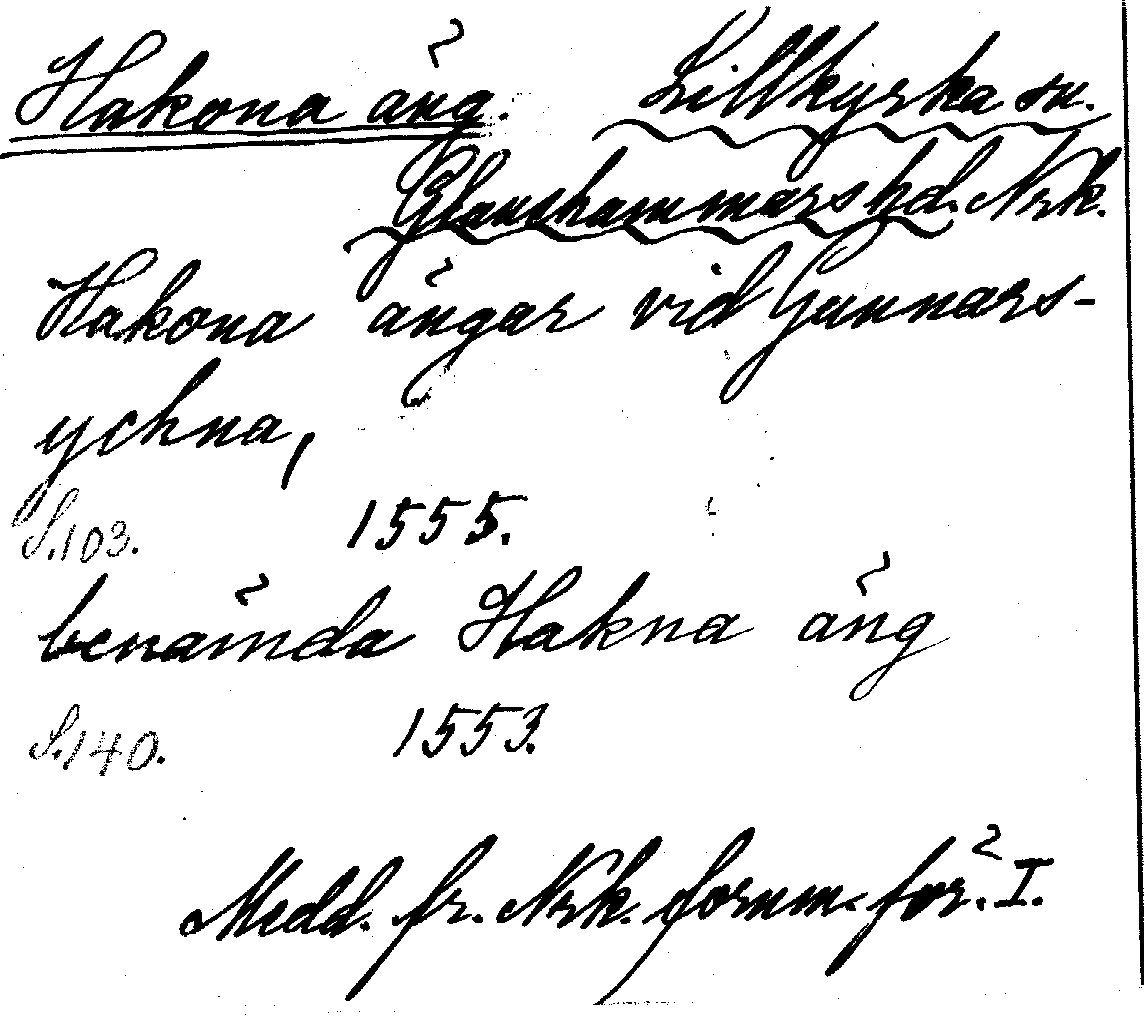 Hakona äng. Lillkyrka sn.
Glanshammars hd. Nrk.
Hakona ängar vid Gunnars-
ychna,
S.103. 1555.
benämda Hakna äng
S.140. 1553.
Medd. fr. Nrk. fornm. för. I.